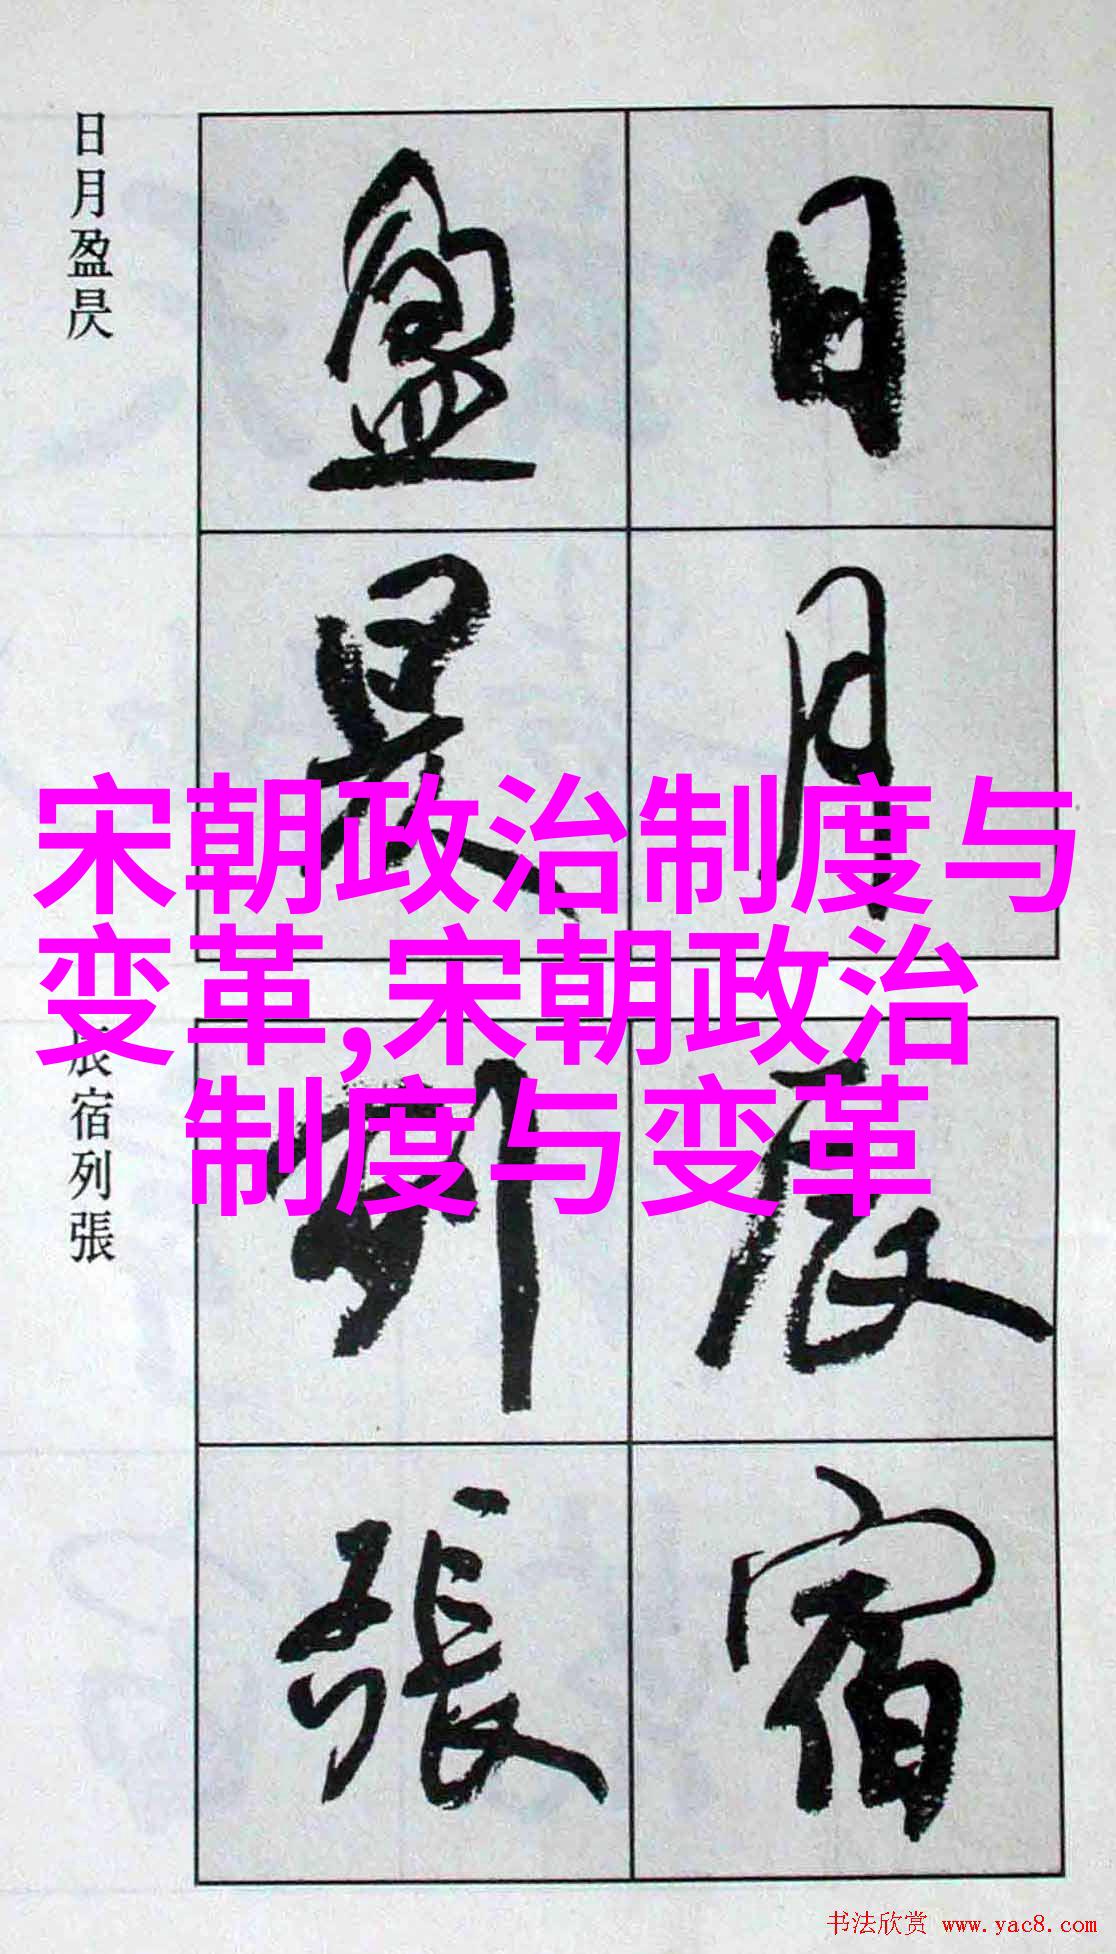 日月
盈昃
日月盈昃
宋朝政治制度与
变革,宋朝政治
制度与变革
辰宿
列張
辰宿列張
书法欣赏 www.yac8.com